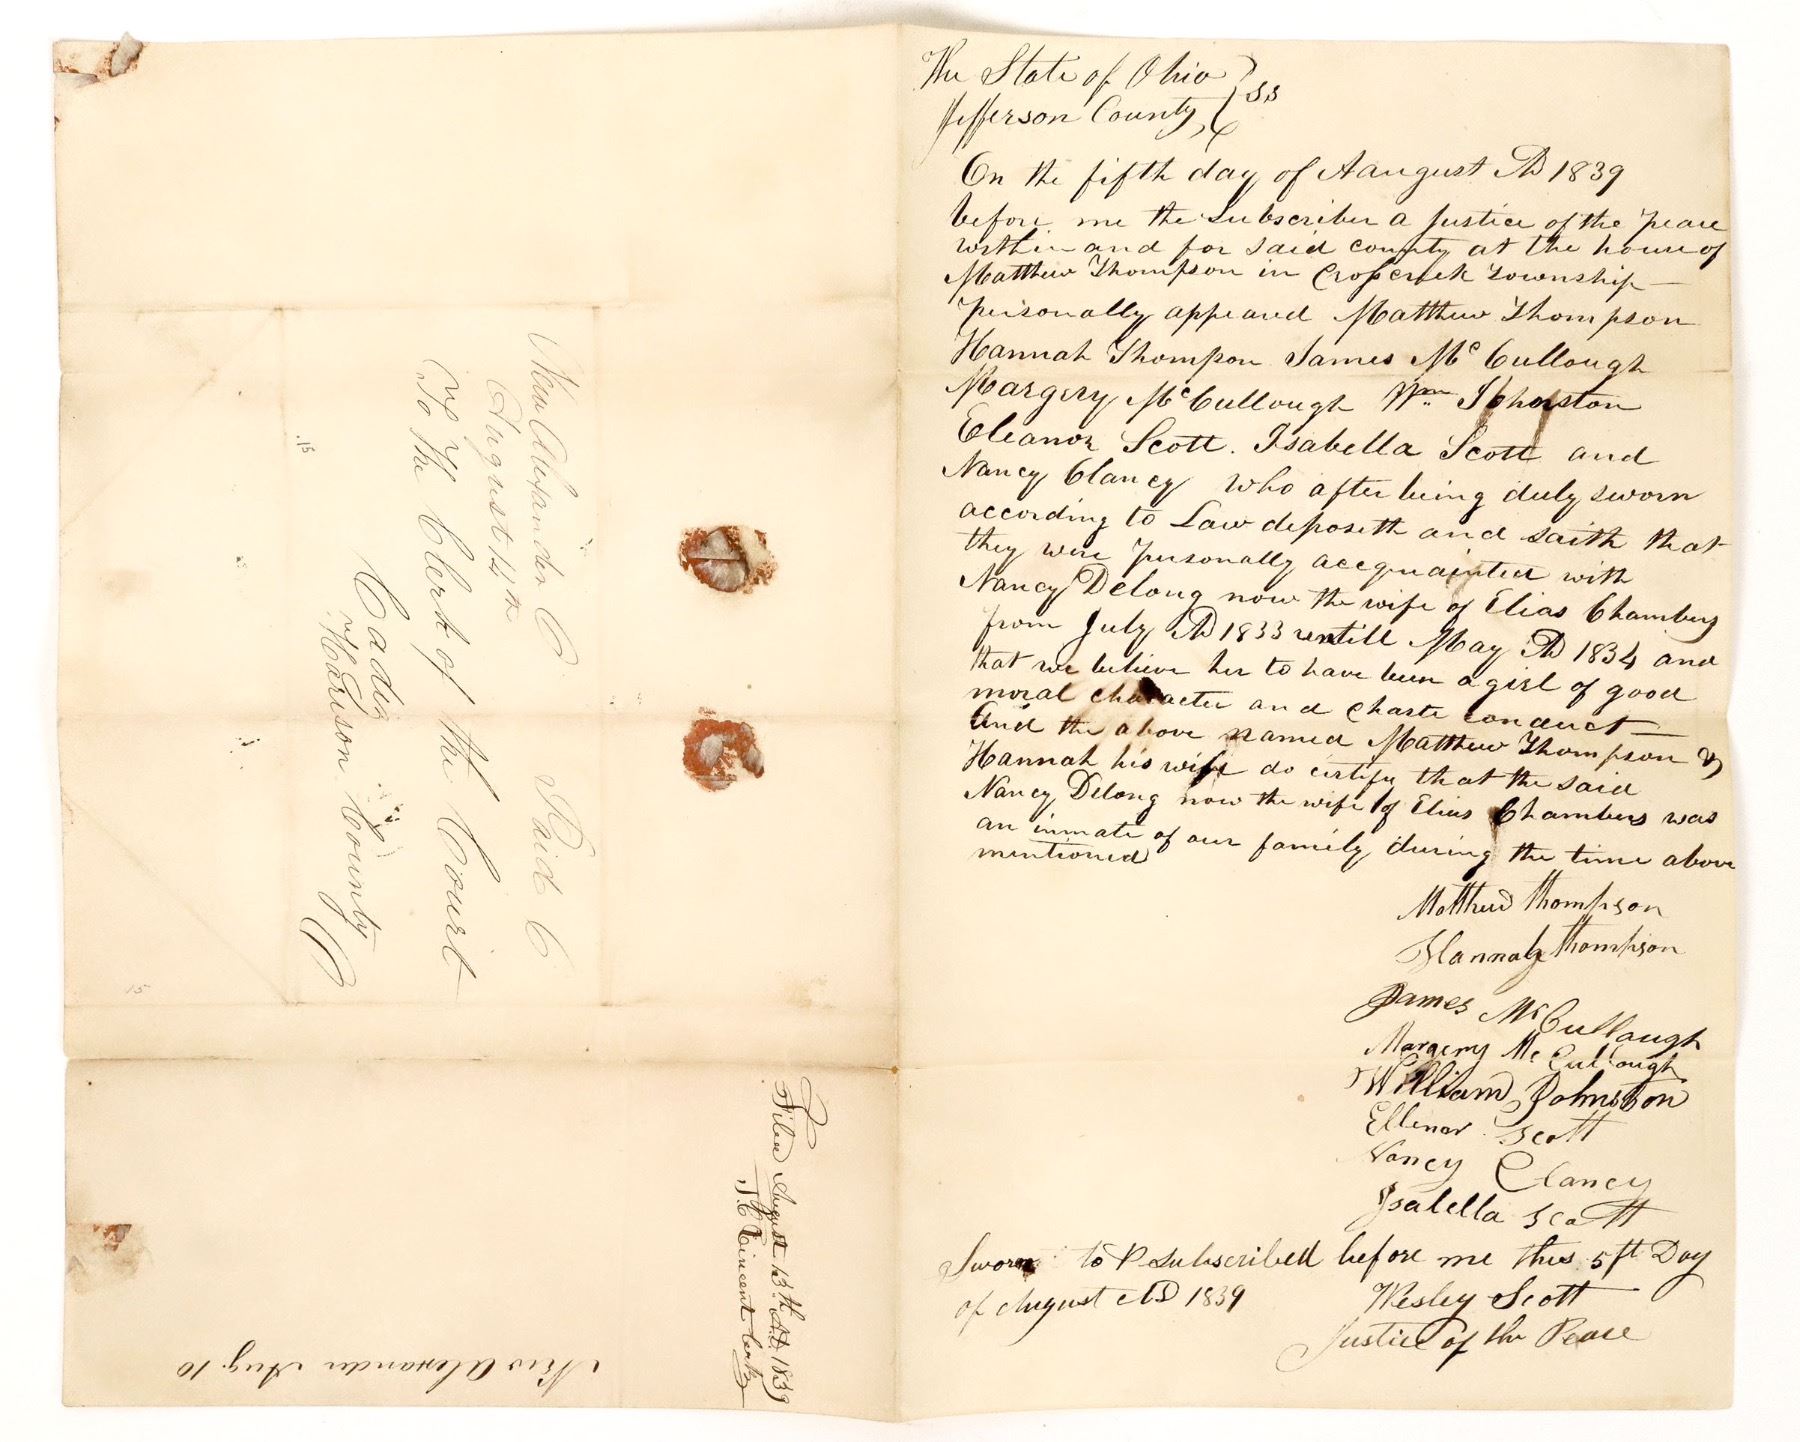 The State of Ohio
Jefferson County, } SS
On the fifth day of Aaugust AD 1839
before me the Subscriber a Justice of the peace
within and for said county at the house of
Matthew Thompson in Crosscreek Township —
personally appeared Matthew Thompson
Hannah Thompson James McCullough
Margery McCullough Wm Johnston
Eleanor Scott. Isabella Scott and
Nancy Clancy who after being duly sworn
according to Law deposeth and saith that
they were personally accquainted with
Nancy Delong now the wife of Elias Chambers
from July AD 1833 untill May AD 1834 and
that we believe her to have been a girl of good
moral character and chaste conduct —
And the above named Matthew Thompson &
Hannah his wife do certify that the said
Nancy Delong now the wife of Elias Chambers was
an inmate of our family during the time above
mentioned
Matthew Thompson
Hannah Thompson
James McCullaugh
Margery McCullough
William Johnston
Ellenor Scott
Nancy Clancy
Isabella Scott
Sworn to & Subscribed before me this 5ft Day
of August AD 1839
Wesley Scott
Justice of the Peace
New Alexander O Paid 6
August 14th
To the Clerk of the Court
Cadiz
Harrison County
O
15
15
Filed August 13th A.D. 1839
New Alexander Aug. 10